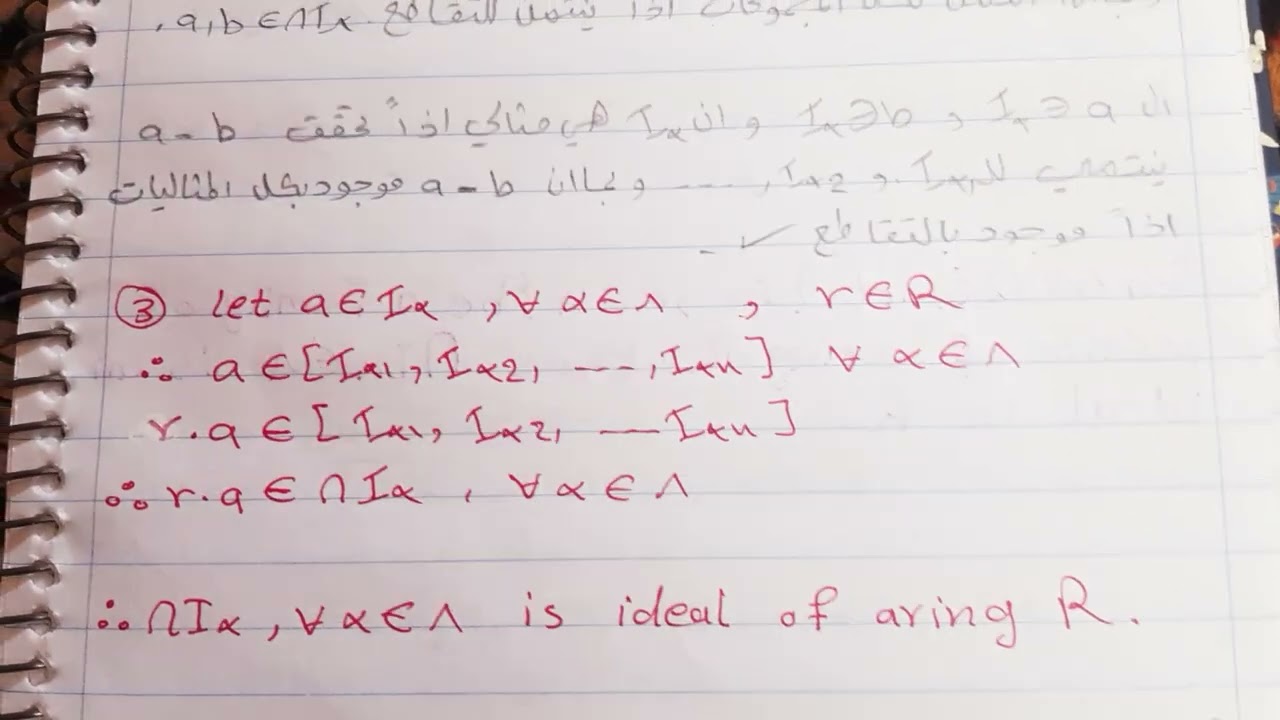 اذا ينتمي للتقاطع a,b∈∩Iα,
ال a∋Iα و b∋Iα و ان Iα هي مثالي اذاً حققت a-b
ينتمي لل Iα1 و Iα2, ---- و بما ان a-b موجود بكل المثاليات
اذاً موجود بالتقاطع ✓.
③ let a∈Iα , ∀ α∈Λ , r∈R
∴ a∈[Iα1, Iα2, ---, Iαn] ∀ α∈Λ
r.a∈[Iα1, Iα2, ---Iαn]
∴ r.a∈∩Iα , ∀α∈Λ
∴ ∩Iα , ∀α∈Λ is ideal of aring R.